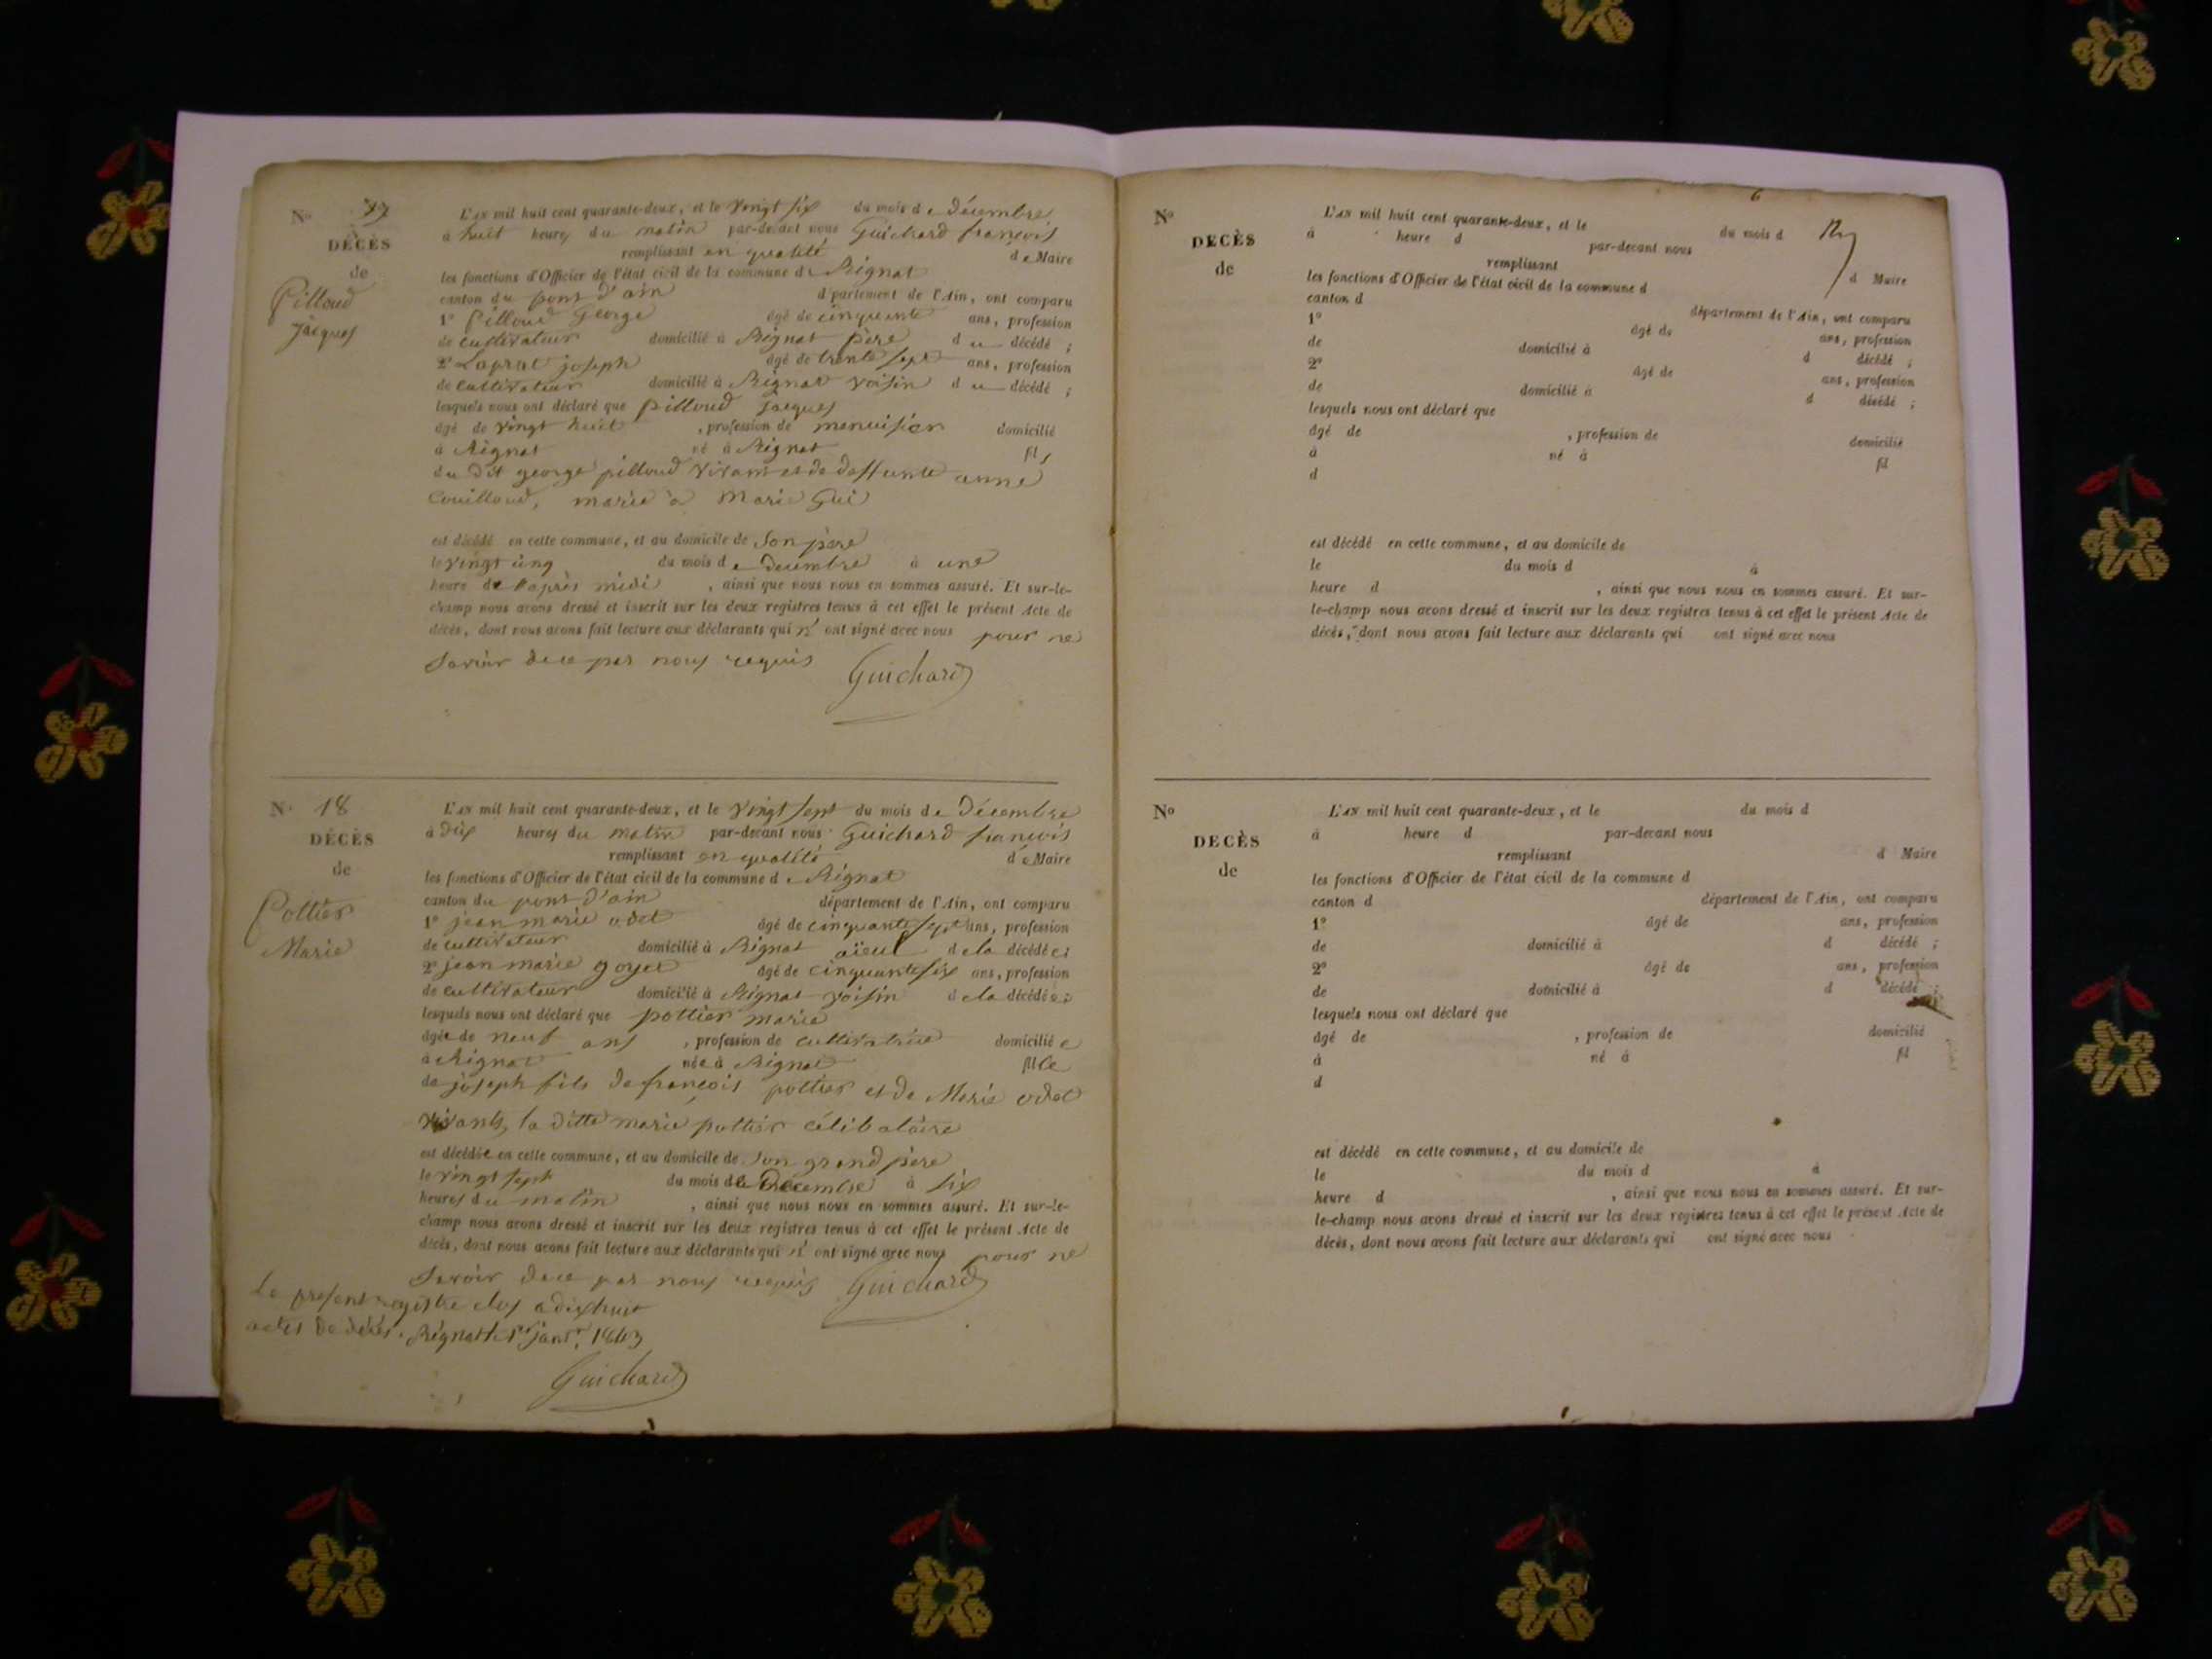 No 17
DÉCÈS
de
Pilloud
Jacques
L'AN mil huit cent quarante-deux, et le vingt six du mois de décembre
à huit heures du matin par-devant nous Guichard françois
remplissant en qualité de Maire
les fonctions d'Officier de l'état civil de la commune de Rignat
canton du pont d'ain département de l'Ain, ont comparu
1° Pilloud George âgé de cinquante ans, profession
de cultivateur domicilié à Rignat père du décédé ;
2° Laprat joseph âgé de trente sept ans, profession
de cultivateur domicilié à Rignat voisin du décédé ;
lesquels nous ont déclaré que pilloud Jacques
âgé de vingt huit , profession de menuisier domicilié
à Rignat né à Rignat fils
du dit george pilloud vivant et de deffunte anne
Couilloud, marié à Marie Gui
est décédé en cette commune, et au domicile de son père
le vingt cinq du mois de decembre à une
heure de l'après midi , ainsi que nous nous en sommes assuré. Et sur-le-
champ nous avons dressé et inscrit sur les deux registres tenus à cet effet le présent Acte de
décès, dont nous avons fait lecture aux déclarants qui n' ont signé avec nous pour ne
savoir de ce par nous requis Guichard
No 18
DÉCÈS
de
Pottier
Marie
L'AN mil huit cent quarante-deux, et le vingt sept du mois de Décembre
à dix heures du matin par-devant nous Guichard françois
remplissant en qualité de Maire
les fonctions d'Officier de l'état civil de la commune de Rignat
canton du pont d'ain département de l'Ain, ont comparu
1° jean marie odet âgé de cinquante sept ans, profession
de cultivateur domicilié à Rignat aïeul de la décédée ;
2° jean marie goyet âgé de cinquante six ans, profession
de cultivateur domicilié à Rignat voisin de la décédée ;
lesquels nous ont déclaré que pottier marie
âgée de neuf ans , profession de cultivatrice domiciliée
à Rignat née à Rignat fille
de joseph fils de françois pottier et de Marie odet
vivants, la ditte marie pottier célibataire
est décédée en cette commune, et au domicile de son grand père
le vingt sept du mois de Décembre à six
heures du matin , ainsi que nous nous en sommes assuré. Et sur-le-
champ nous avons dressé et inscrit sur les deux registres tenus à cet effet le présent Acte de
décès, dont nous avons fait lecture aux déclarants qui n' ont signé avec nous pour ne
savoir de ce par nous requis Guichard
Le présent registre clos a dix huit
actes de décès. Rignat le 1er janvr. 1843
Guichard
6
No
DÉCÈS
de
L'AN mil huit cent quarante-deux, et le du mois d
à heure d par-devant nous
remplissant d Maire
les fonctions d'Officier de l'état civil de la commune d
canton d département de l'Ain, ont comparu
1° âgé de ans, profession
de domicilié à d décédé ;
2° âgé de ans, profession
de domicilié à d décédé ;
lesquels nous ont déclaré que
âgé de , profession de domicilié
à né à fil
d
est décédé en cette commune, et au domicile de
le du mois d à
heure d , ainsi que nous nous en sommes assuré. Et sur-
le-champ nous avons dressé et inscrit sur les deux registres tenus à cet effet le présent Acte de
décès, dont nous avons fait lecture aux déclarants qui ont signé avec nous
No
DÉCÈS
de
L'AN mil huit cent quarante-deux, et le du mois d
à heure d par-devant nous
remplissant d Maire
les fonctions d'Officier de l'état civil de la commune d
canton d département de l'Ain, ont comparu
1° âgé de ans, profession
de domicilié à d décédé ;
2° âgé de ans, profession
de domicilié à d décédé ;
lesquels nous ont déclaré que
âgé de , profession de domicilié
à né à fil
d
est décédé en cette commune, et au domicile de
le du mois d à
heure d , ainsi que nous nous en sommes assuré. Et sur-
le-champ nous avons dressé et inscrit sur les deux registres tenus à cet effet le présent Acte de
décès, dont nous avons fait lecture aux déclarants qui ont signé avec nous